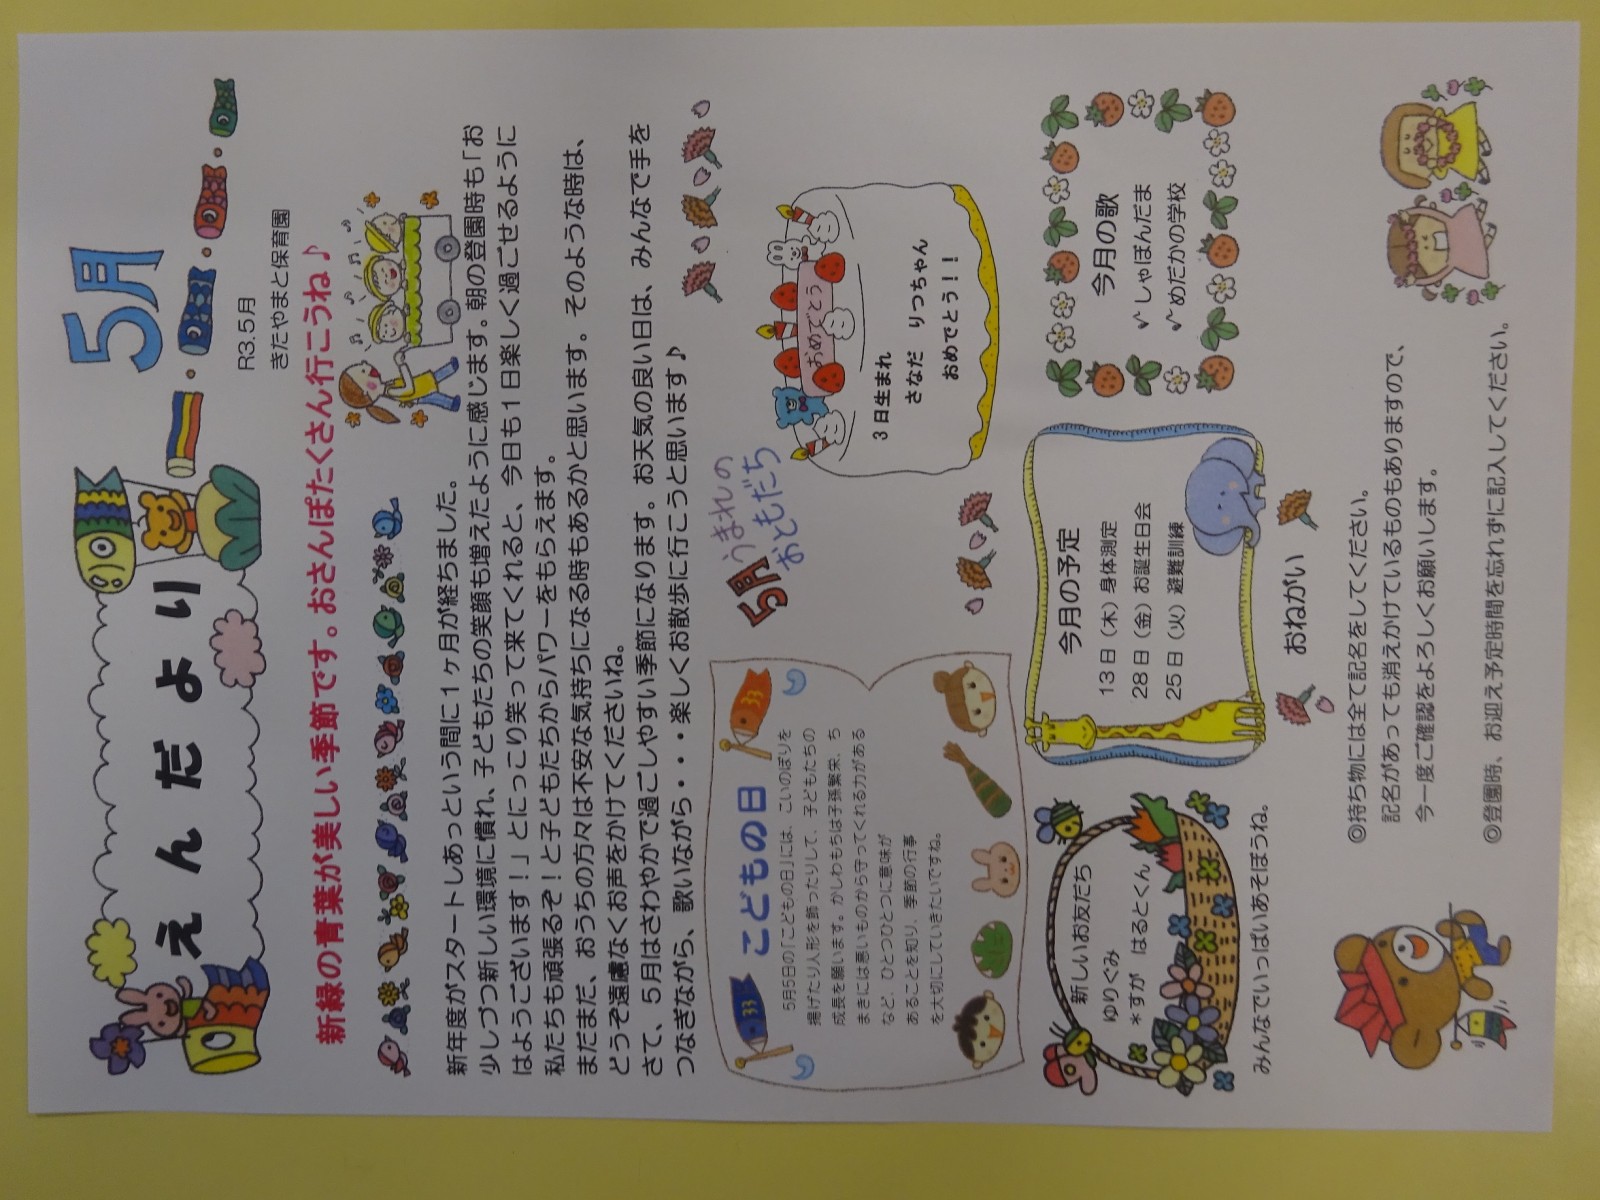 えんだより
5月
R3.5月
きたやまと保育園
新緑の青葉が美しい季節です。おさんぽたくさん行こうね♪
新年度がスタートしあっという間に１ヶ月が経ちました。
少しづつ新しい環境に慣れ、子どもたちの笑顔も増えたように感じます。朝の登園時も「お
はようございます！」とにっこり笑って来てくれると、今日も１日楽しく過ごせるように
私たちも頑張るぞ！と子どもたちからパワーをもらえます。
まだまだ、おうちの方々は不安な気持ちになる時もあるかと思います。そのような時は、
どうぞ遠慮なくお声をかけてくださいね。
さて、５月はさわやかで過ごしやすい季節になります。お天気の良い日は、みんなで手を
つなぎながら、歌いながら・・・楽しくお散歩に行こうと思います♪
こどもの日
5月5日の「こどもの日」には、こいのぼりを
揚げたり人形を飾ったりして、子どもたちの
成長を願います。かしわもちは子孫繁栄、ち
まきには悪いものから守ってくれる力がある
など、ひとつひとつに意味が
あることを知り、季節の行事
を大切にしていきたいですね。
5月うまれの
おともだち
おめでとう
３日生まれ
さなだ りつちゃん
おめでとう！！
新しいお友だち
ゆりぐみ
＊すが はるとくん
みんなでいっぱいあそぼうね。
今月の予定
13日（木）身体測定
28日（金）お誕生日会
25日（火）避難訓練
今月の歌
✓しゃぼんだま
✓めだかの学校
おねがい
◎持ち物には全て記名をしてください。
記名があっても消えかけているものもありますので、
今一度ご確認をよろしくお願いします。
◎登園時、お迎え予定時間を忘れずに記入してください。